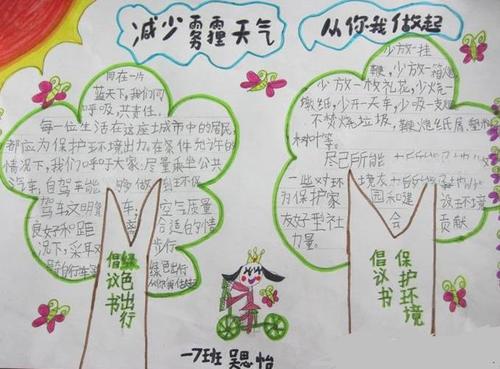 减少雾霾天气
从你我做起
同在一片
蓝天下,我们同
呼吸,共责任。
每一位生活在这座城市中的居民
都应为保护环境出力。在条件允许的
情况下,我们呼吁大家:尽量乘坐公共
汽车,自驾车能够做到环保
驾车文明
空气质量
良好和距
合适的情
况下,采取
步行
绿色出行
少放一挂
鞭,少放一箱炮
少放一枚礼花,少烧一
墩纸,少开一天车,少吸一支烟
不焚烧垃圾,
树叶等。
尽己所能
一些对环境友
为保护家园和建
设环境
友好型社会
贡献
力量
倡议书
绿色出行
倡议书
保护环境
一7班 吴思怡